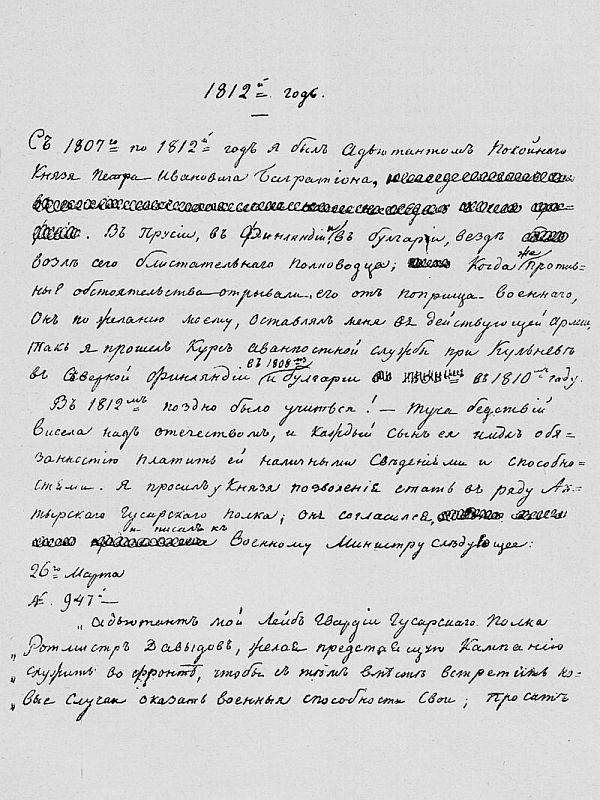 1812й годъ.
Съ 1807го по 1812й годъ я былъ Адъютантомъ Покойнаго
Князя Петра Ивановича Багратіона,
Въ Прусіи, въ Финляндіи, въ Булгаріи, вездѣ
возлѣ сего блистательнаго Полководца; Когда же Против-
ныѣ обстоятельства отрывали его отъ поприща военнаго,
Онъ по желанію моему, оставлялъ меня въ действующей Арміи,
такъ я прошелъ Курсъ аванпостной службы при Кульневѣ
въ 1808мъ
въ Северной Финляндіи и Булгаріи въ 1810мъ году.
Въ 1812мъ поздно было учиться! — Туча бедствій
висела надъ отечествомъ, и каждый сынъ ея
занностію платить ей наличными Сведеніями и способно-
стями. Я просилъ у Князя позволеніе стать въ ряду Ах-
тырскаго Гусарскаго Полка; онъ согласился,
и писалъ къ
Военному Министру следующее:
26го Марта
№. 947й —
„ Адъютантъ мой Лейбъ Гвардіи Гусарскаго Полка
„ Ротмистръ Давыдовъ, желая предстоящую Кампанію
„ служить во фронтѣ, чтобы съ темъ вместѣ встретить но-
„ вые случаи оказать военныя способности Свои; Проситъ